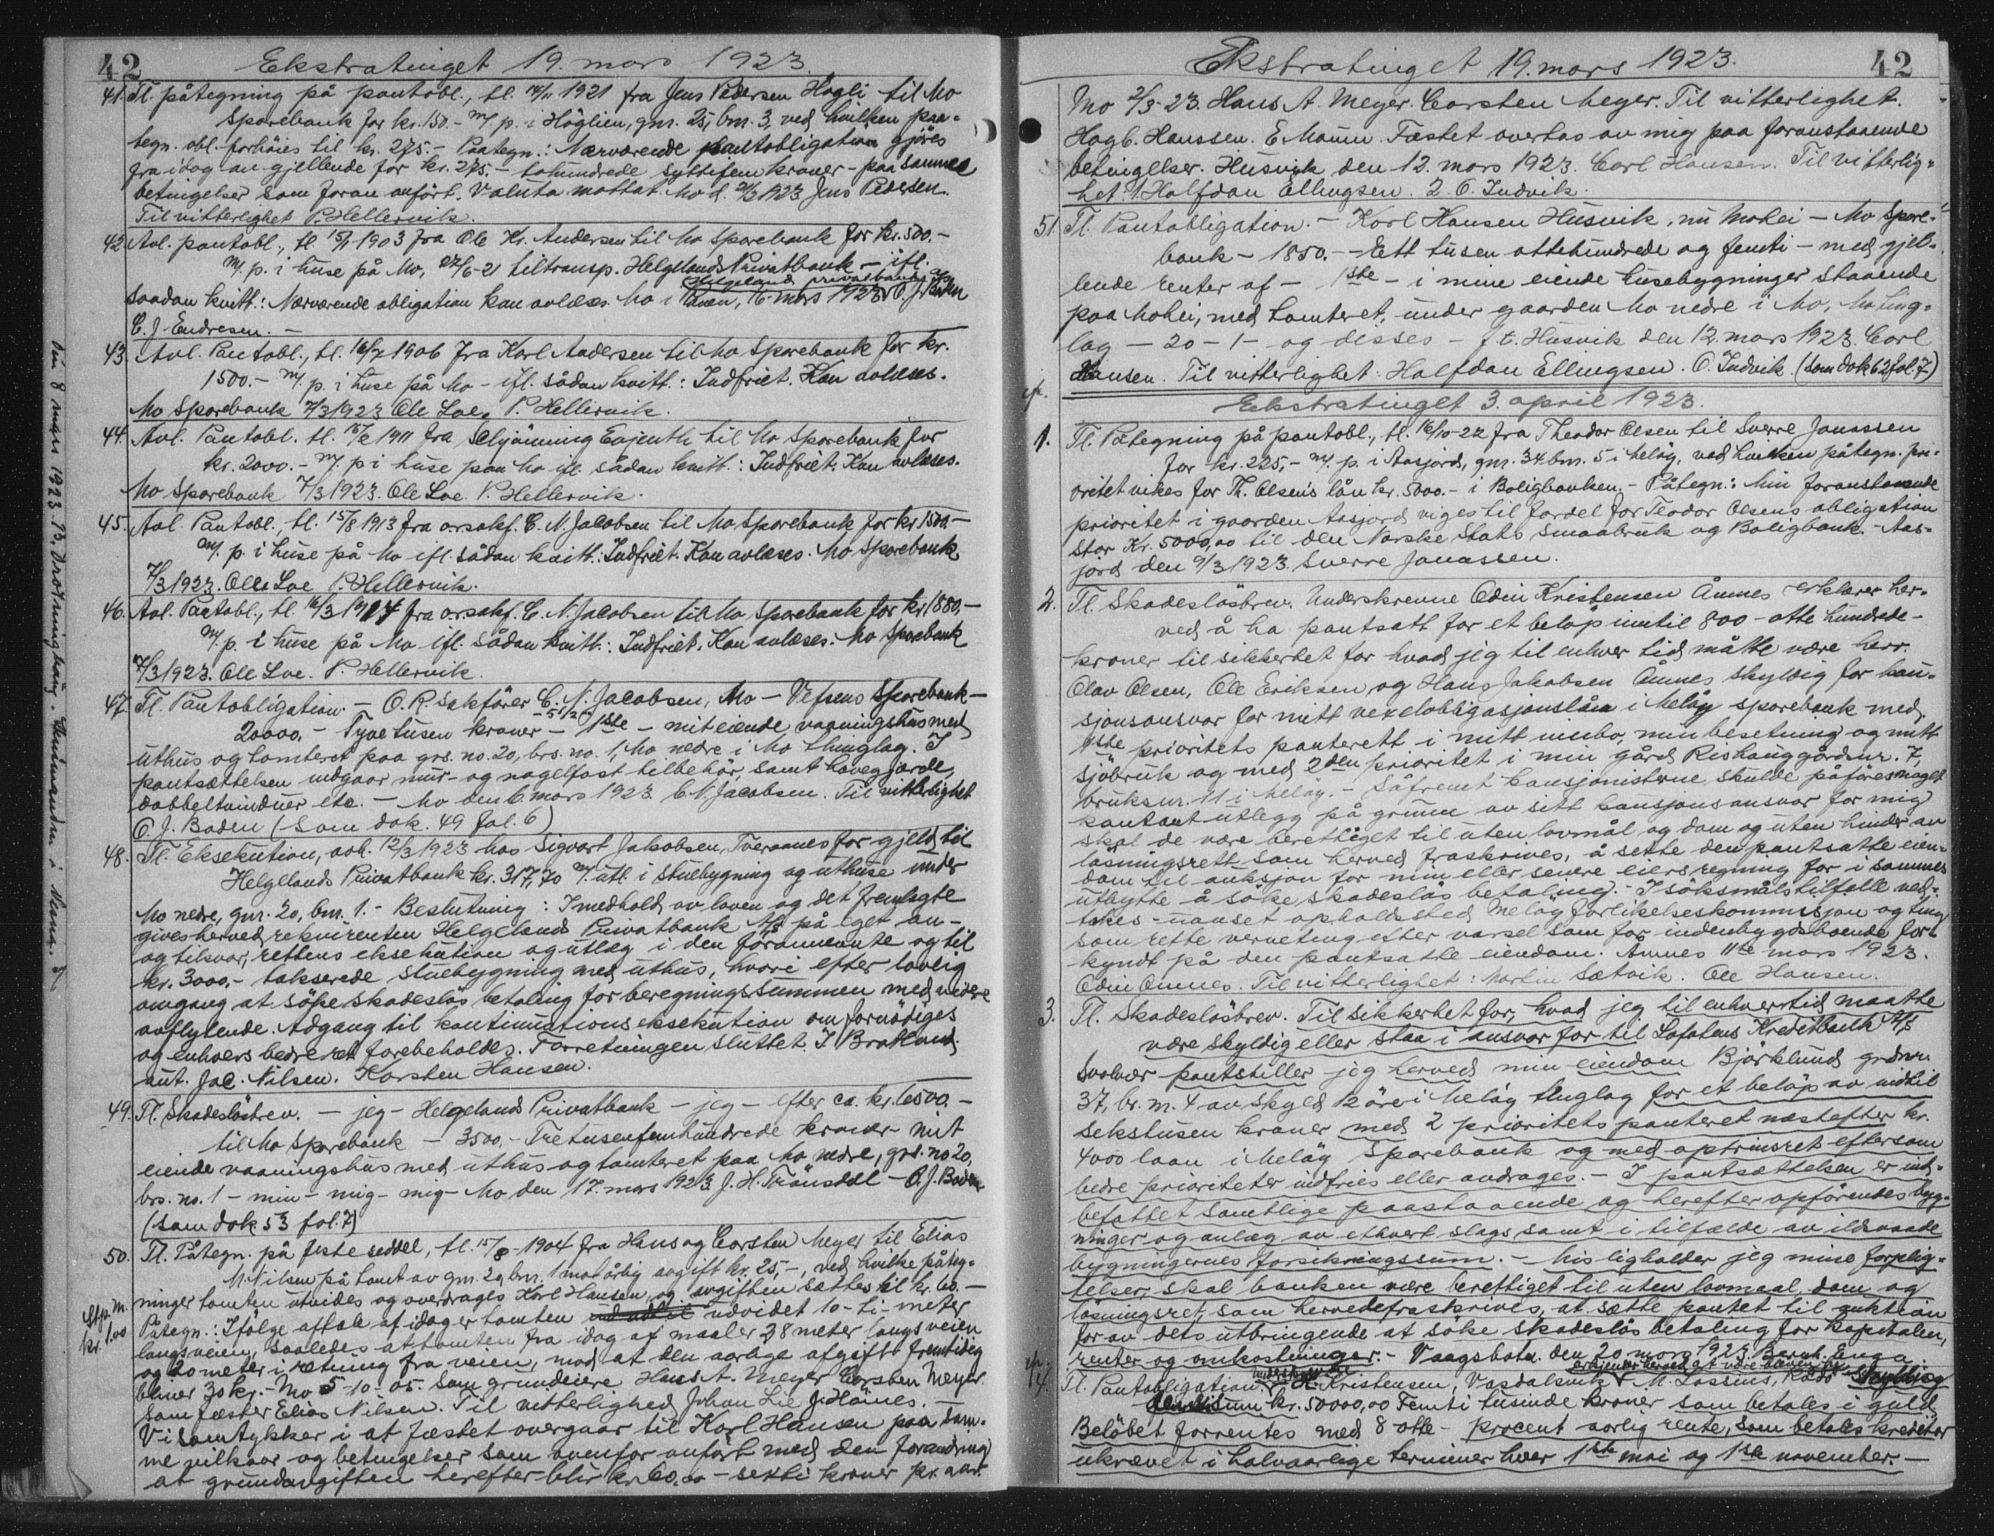 42
Ekstratinget 19. mars 1923.
41. Tl. påtegning på pantobl., tl. 1921 fra Jens Pedersen Högli til Mo
Sparebank for kr. 150.- m/ p. i Höglien, gnr. 25, bnr. 3, ved hvilken pan-
tegn. obl. forhöies til kr. 275.- Paategn.: Nærværende pantobligation gjöres
fra idag av gjellende for kr. 275.- tohundrede syttifem kroner - paa samme
betingelser som foran anfört. Valuta mottat. Mo d. 1923 Jens Pedersen.
Til vitterlighet P. Hellervik.
42. Avl. pantobl., tl. 1903 fra Ole Kr. Andersen til Mo Sparebank for kr. 500.-
m/ p. i huse på Mo, 27/6-21 tiltransp. Helgelands Privatbank - ifl.
Helgeland privatbank
saadan kvitt.: Nærværende obligation kan avlæses. Mo i Ranen, 16. mars 1923 O. J.
C. J. Endresen. -
43. Avl. Pantobl., tl. 16/7 1906 fra Karl Andersen til Mo Sparebank for kr.
1500.- m/ p. i huse på Mo - ifl. sådan kvitt.: Indfriet. Kan avlæses.
Mo Sparebank 7/3 1923 Ole Loe, P. Hellervik.
44. Avl. Pantobl. tl. 1911 fra Evjenth til Mo Sparebank for
kr. 2000.- m/ p i huse paa Mo ifl. sådan kvitt.: Indfriet. Kan avlæses.
Mo Sparebank 7/3 1923. Ole Loe. P. Hellervik.
45. Avl. Pantobl. tl. 15/8 1913 fra orsakf. C. N. Jacobsen til Mo Sparebank for kr 1500.-
m/ p. i huse på Mo ifl. sådan kvitt.: Indfriet. Kan avlæses. Mo Sparebank
7/3 1923. Ole Loe P. Hellervik.
46. Avl. Pantobl., tl. 16/3 1914 fra o.r.sakf. C. N. Jacobsen til Mo Sparebank for kr 1880,-
m/ p. i huse på Mo ifl. sådan kvitt.: Indfriet. Kan avlæses. Mo Sparebank
7/3 1923. Ole Loe. P. Hellervik.
47. Tl. Pantobligation - O. R. Sakförer C. N. Jacobsen, Mo - Vefsens Sparebank -
20000,- Tyvetusen kroner - 1ste - mit eiende vaaningshus med
uthus og tomteret paa grs. no. 20, brs. no. 1, Mo nedre i Mo thinglag. I
pantsættelsen indgaar mur- og nagelfast tilbehör, samt havegjærde,
dobbeltvinduer etc. - Mo den 6 mars 1923 C. N. Jacobsen. Til vitterlighet
O. J. Boden (som dok. 49 fol. 6)
48. Tl. Eksekution, avh. 12/3 1923 hos Sigvart Jakobsen, Tveraanes for gjeld til
Helgelands Privatbank kr. 317,70 m/ utl. i stuebygning og uthuse under
Mo nedre, gnr. 20, bnr. 1. - Beslutning: I medhold av loven og det fremlagte
gives herved rekvirenten Helgelands Privatbank A/S på eget an-
og tilsvar, rettens eksekution og utlæg i den forannævnte og til
kr. 3000.- takserede stuebygning med uthus, hvori efter lovlig
omgang at söke skadeslös betaling for beregningssummen med videre
avflytende. Adgang til kontinuationseksekution om fornödiges
og enhvers bedre ret forebeholdes. Forretningen sluttet. I Bratland.
aut. Jac. Nilsen. Karsten Hansen.
49. Tl. Skadeslösbrev. - jeg - Helgelands Privatbank - jeg - efter ca. kr. 6500.-
til Mo Sparebank - 3500,- Tretusenfemhundrede kroner - mit
eiende vaaningshus med uthus og tomteret paa Mo nedre, grs. no 20,
brs. no. 1 - min - mig - mig - Mo den 17. mars 1923 J. H. Trönsdal - O. J. Boden
(som dok 53 fol. 7)
50. Tl. Påtegn. på festeseddel, tl. 15/8 1904 fra Hans og Carsten Meyer til Elias
M. Nilsen på tomt av gnr. 20, bnr. 1 mot årlig avgift kr. 25,-, ved hvilke påteg-
ninger tomten utvides og overdrages Karl Hansen, og avgiften sættes til kr. 60.-
Stp. m. kr. 1.00
Påtegn.: Ifölge aftale af idag er tomten udvidet 10 - ti - meter
langs veien, saaledes at tomten fra idag af maaler 28 meter langs veien
og 20 meter i retning fra veien, mod at den aarlige afgift fremtidig
bliver 30 kr. - Mo 5-10-05. Som grundeiere Hans A. Meyer Carsten Meyer
Som fæster Elias Nilsen. Til vitterlighed Johan Lie J. Höines. -
Vi samtykker i at fæstet overgaar til Karl Hansen paa sam-
me vilkaar og betingelser som ovenfor anfört med den forandring
at grundavgiften herefter blir kr. 60,00 - sexti kroner pr. aar.
42
Ekstratinget 19. mars 1923.
Mo 2/3-23. Hans A. Meyer. Carsten Meyer. Til vitterlighet.
Hagb. Hanssen. E. Maum. Fæstet overtas av mig paa foranstaaende
betingelser. Husvik den 12. mars 1923. Carl Hansen. Til vitterlig-
het: 1. Halfdan Ellingsen. 2. O. Indvik.
51. Tl. Pantobligation. - Karl Hansen Husvik, nu Mohei - Mo Spare-
bank - 1850.- Ett tusen attehundrede og femti - med gjel-
lende renter af - 1ste - i mine eiende husebygninger staaende
paa Mohei, med tomteret, under gaarden Mo nedre i Mo, Mo ting-
lag - 20 - 1 - og disses - f. t. Husvik den 12. mars 1923. Carl
Hansen. Til vitterlighet: Halfdan Ellingsen. O. Indvik (som dok 62 fol. 7)
Ekstratinget 3. april 1923.
1. Tl. Påtegning på pantobl., tl. 16/10-22 fra Theodor Olsen til Sverre Jonassen
for kr. 225,- m/ p. i Aasjord, gnr. 34 bnr. 5 i Melöy, ved hvilken påtegn. pri-
oritet vikes for Th. Olsens lån kr. 5000.- i Boligbanken. - Påtegn.: Min foranstaaende
prioritet i gaarden Aasjord viges til fordel for Teodor Olsens obligation
stor Kr. 5000,00 til den Norske Stats Smaabruk og Boligbank. - Aas-
jord den 9/3 1923. Sverre Jonassen.
2. Tl. Skadeslösbrev. Underskrevne Odin Kristensen Ånnes erklærer her-
ved å ha pantsatt for et belöp inntil 800 - otte hundrede -
kroner til sikkerhet for hvad jeg til enhver tid måtte være herr.
Olav Olsen, Ole Eriksen og Hans Jakobsen Ånnes skyldig for kau-
sjonsansvar for mitt vexelobligasjonslån i Melöy sparebank med
1ste prioritets panterett i mitt innbo, min besetning og mitt
sjöbruk og med 2den prioritet i min gård Rishaug gårdsnr. 7,
bruksnr. 11 i Melöy. - Såfremt kausjonistene skulde påföres noget
kontant utlegg på grunn av sitt kausjonsansvar for mig
skal de være berettiget til uten lovmål og dom og uten hinder av
lösningsrett som herved fraskrives, å sette den pantsatte eien-
dom til auksjon for min eller senere eiers regning for i sammes
utbytte å söke skadeslös betaling. - I söksmålstilfelle ved-
takes - uanset opholdssted Melöy forlikelseskommisjon og ting
som rette verneting efter varsel som for indenbygdsboende for-
kyndt på den pantsatte eiendom. Ånnes 11te mars 1923.
Odin Ånnes. Til vitterlighet: Martin Sætvik. Ole Hansen.
3. Tl. Skadeslösbrev. Til sikkerhet for, hvad jeg til enhver tid maatte
være skyldig eller staa i ansvar for til Lofotens Kreditbank A/S
Svolvær pantstiller jeg herved min eiendom Björklund grdsnr.
37, br. nr. 4 av skyld 12 öre i Melöy thinglag for et belöp av indtil
sekstusen kroner med 2 prioritets panteret næst efter kr.
4000 laan i Melöy Sparebank og med optrinsret eftersom
bedre prioriteter indfries eller avdrages. - I pantsættelsen er ind-
befattet samtlige paastaaende og herefter opförendes byg-
ninger og anlæg av ethvert slags samt i tilfælde av ildsvaade
bygningernes forsikringssum. - Misligholder jeg mine forplig-
telser, skal banken være berettiget til uten lovmaal, dom og
lösningsret, som herved fraskrives, at sætte pantet til auktion
for av dets utbringende at söke skadeslös betaling for kapitalen,
renter og omkostninger. - Vaagsbotn den 20 mars 1923 Bernh. Enga.
4. Tl. Pantobligation. Kristensen, Vasdalsvik erkjender herved at være bleven skyldig
sum kr. 50000,00 Femti tusinde kroner som betales i guld
Belöbet forrentes med 8 otte - procent aarlig rente, som betales kreditor
ukrævet i halvaarlige terminer hver 1ste mai og 1ste november. -